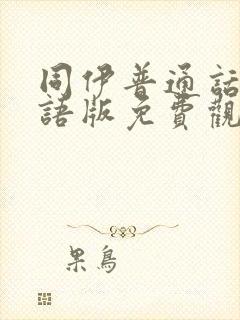 同伊普通話
語版免費觀
果鳥